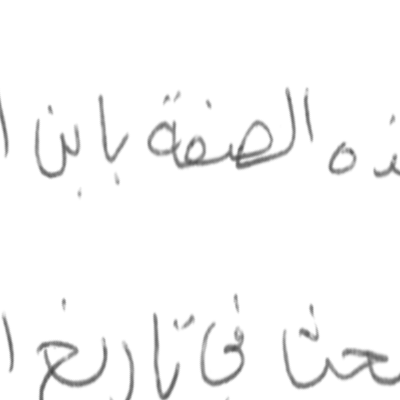 ذه الصفة بابن ا
بحث في تاريخ ا